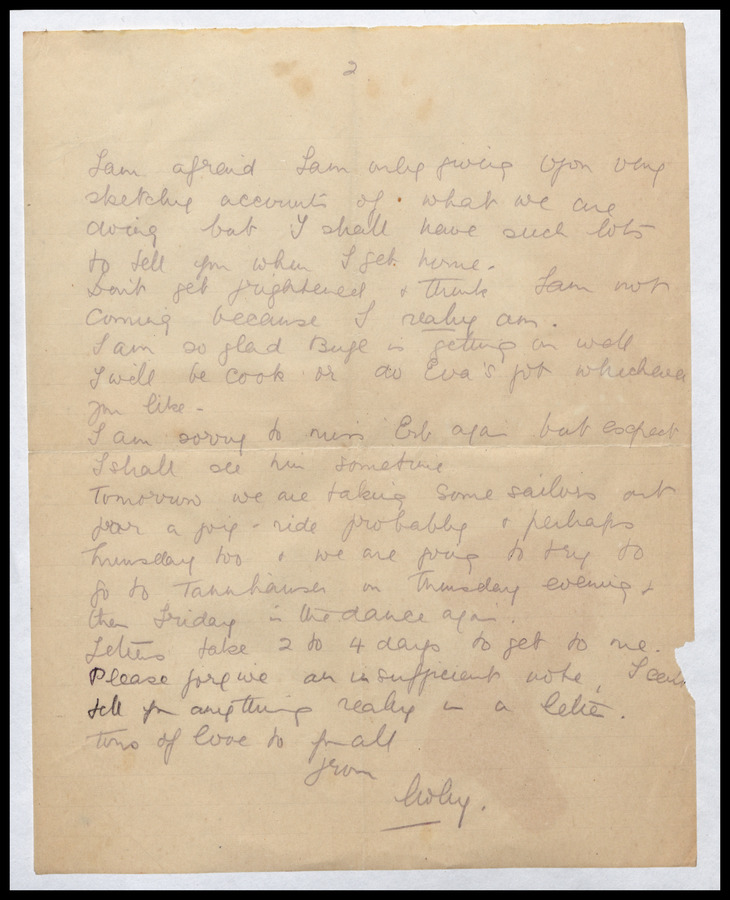 2
I am afraid I am only giving you very
sketchy accounts of what we are
doing but I shall have such lots
to tell you when I get home.
Don't get frightened & think I am not
coming because I really am.
I am so glad is getting on well
I will be cook or do Eva's job whichever
you like -
I am sorry to miss again but expect
I shall see him sometime
Tomorrow we are taking some sailors out
for a joy-ride probably & perhaps
Thursday too & we are going to try to
go to Tannhauser on Thursday evening &
then Friday is the dance again.
Letters take 2 to 4 days to get to me.
Please forgive an insufficient note, I
tell you anything really in a letter.
Tons of love to you all
from